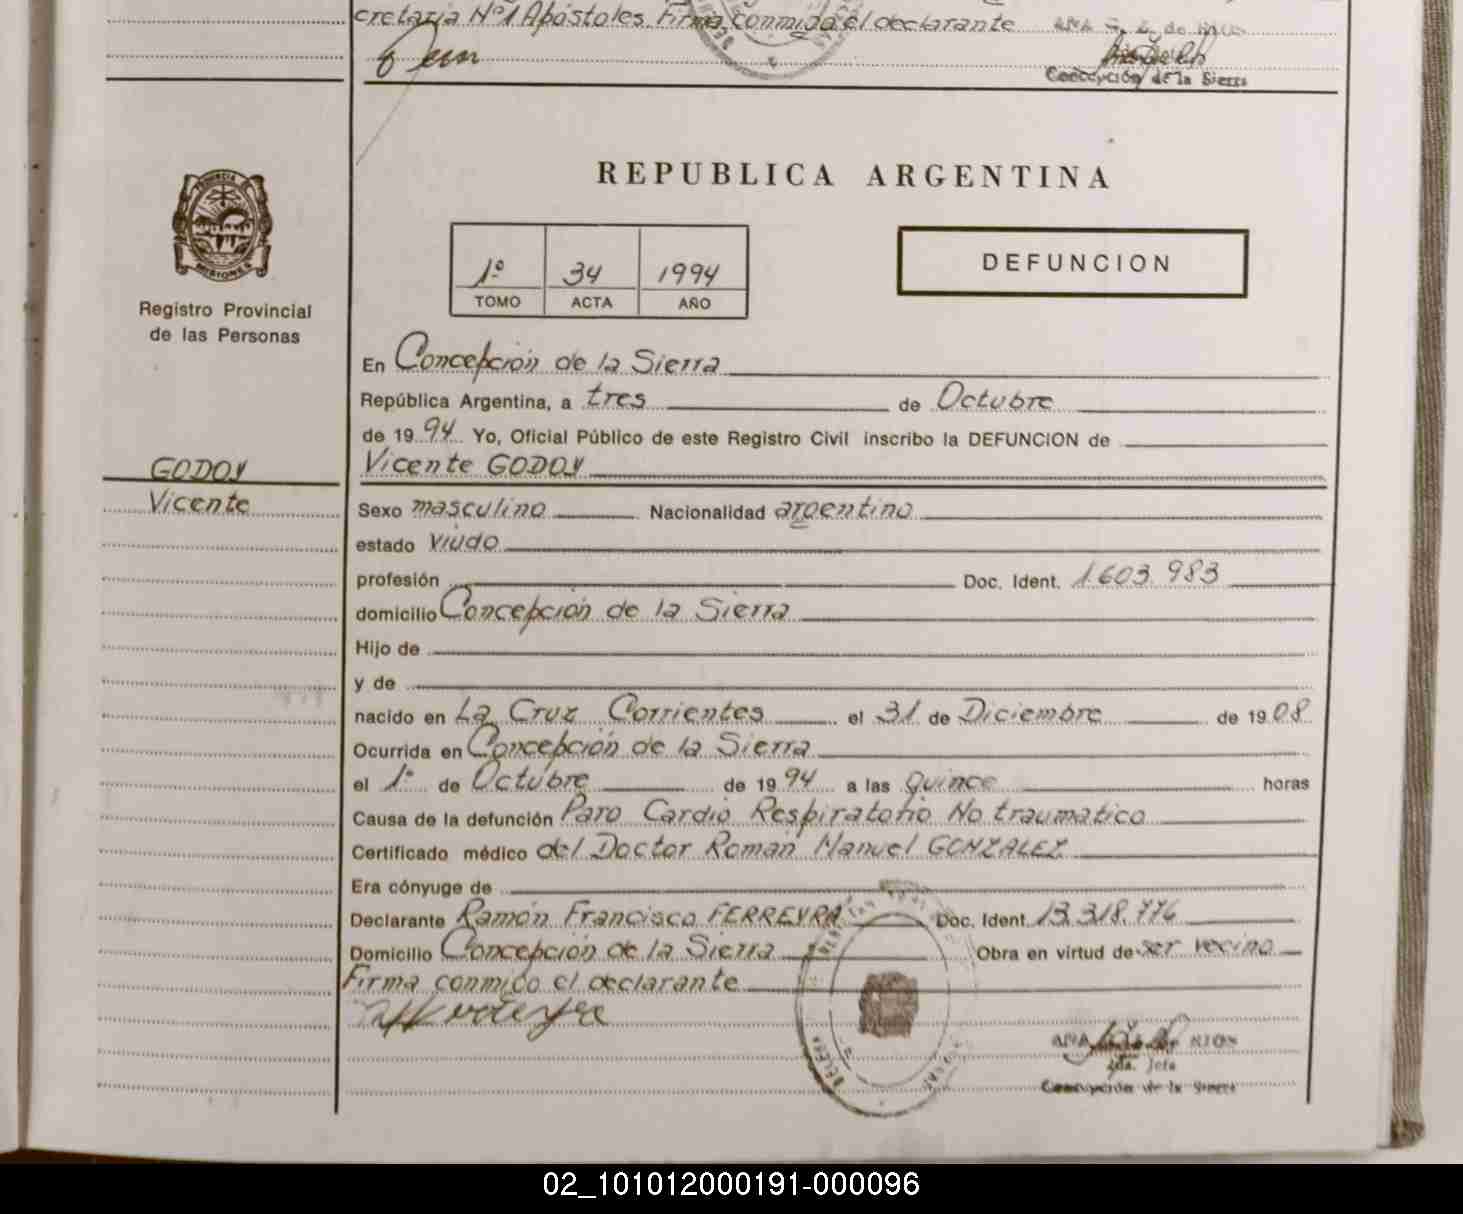 cretaria Nº1 Apóstoles. Firma conmigo el declarante
Concepción de la Sierra
REPUBLICA ARGENTINA
PROVINCIA DE
MISIONES
Registro Provincial
de las Personas
1º 34 1994
TOMO ACTA AÑO
DEFUNCION
En Concepción de la Sierra
República Argentina, a tres de Octubre
de 1994 Yo, Oficial Público de este Registro Civil inscribo la DEFUNCION de
GODOY
Vicente GODOY
Vicente
Sexo masculino Nacionalidad argentino
estado viudo
profesión Doc. Ident. 1.603.983
domicilio Concepción de la Sierra
Hijo de
y de
nacido en La Cruz Corrientes el 31 de Diciembre de 1908
Ocurrida en Concepción de la Sierra
el 1º de Octubre de 1994 a las Quince horas
Causa de la defunción Paro Cardio Respiratorio No traumatico
Certificado médico del Doctor Román Manuel GONZALEZ
Era cónyuge de
Declarante Ramón Francisco FERREYRA Doc. Ident. 13.318.776
Domicilio Concepción de la Sierra Obra en virtud de ser vecino
Firma conmigo el declarante
ANA RIOS
Jefa
Concepción de la Sierra
02_101012000191-000096